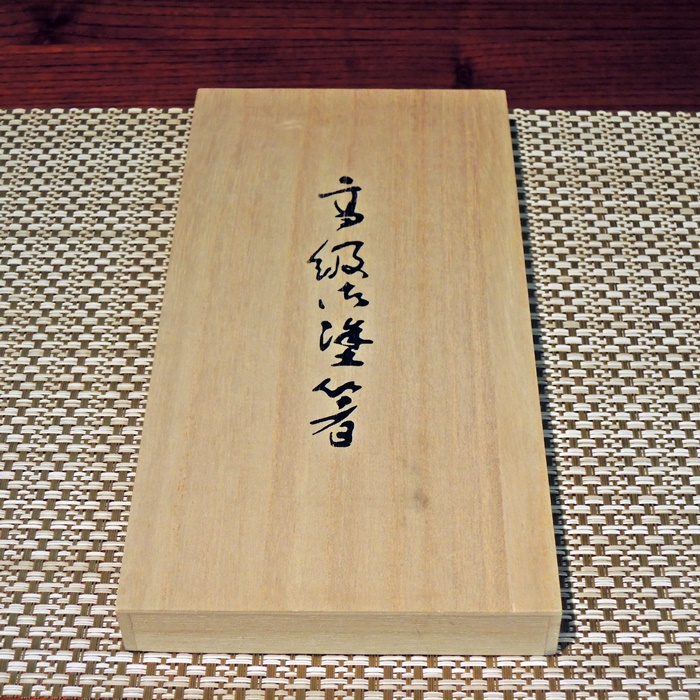 高級御塗箸